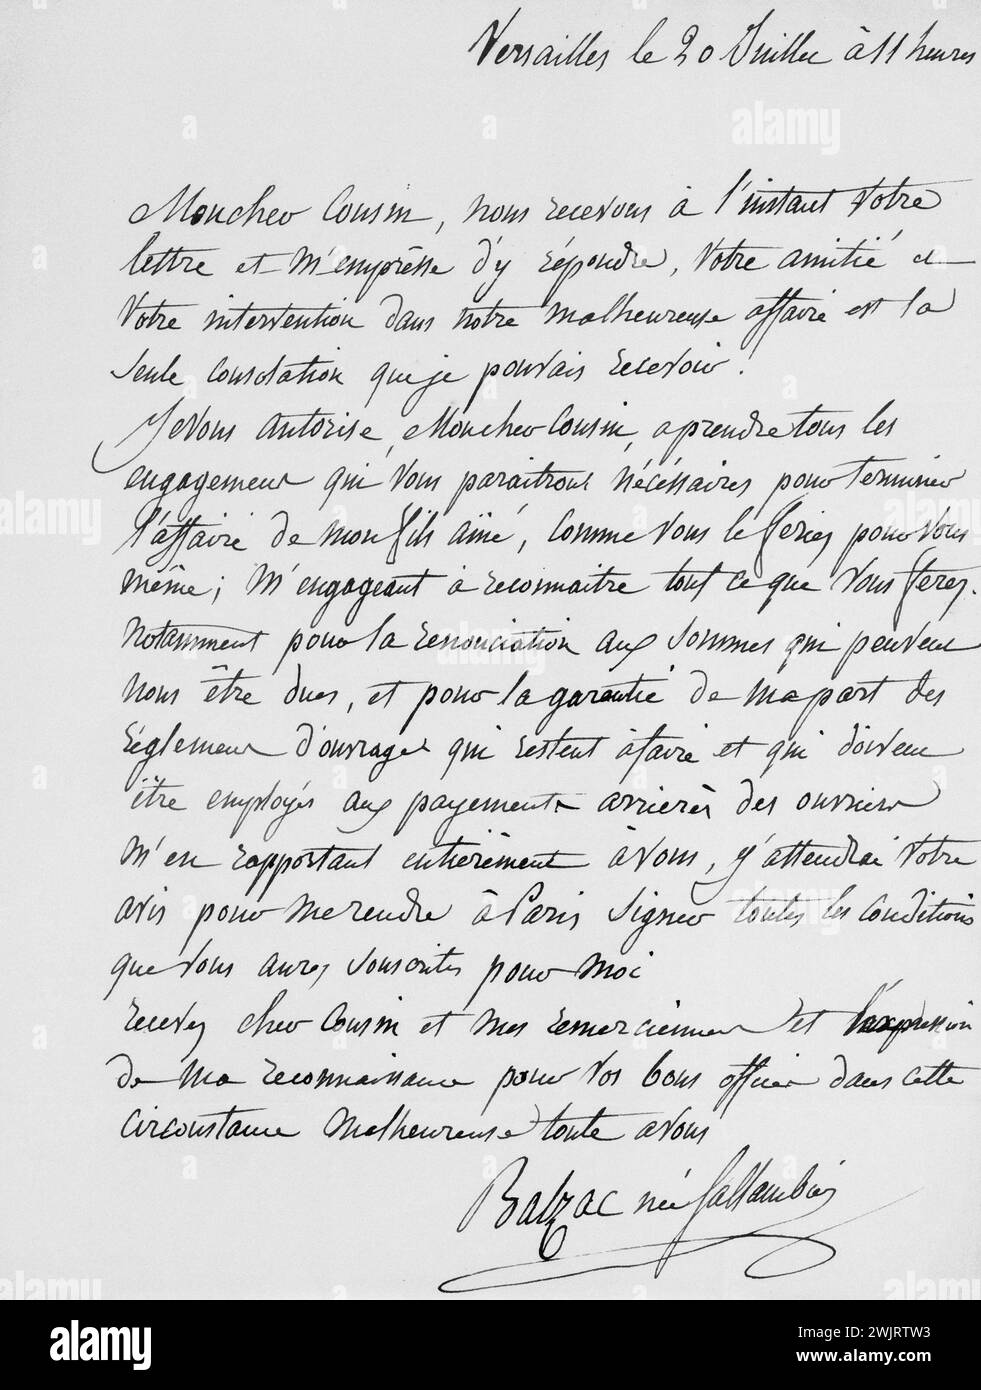 Versailles le 20 Juillet à 11 heures
Moncher Cousin, nous recevons à l'instant votre
lettre et m'empresse d'y répondre, votre amitié et
votre intervention dans notre malheureuse affaire est la
seule consolation que je pouvais recevoir.
Jevous autorise, Moncher Cousin, aprendre tous les
engagement qui vous paraitront nécéssaires pour terminer
l'affaire de mon fils ainé, comme vous le feriez pour vous
même; m'engageant à reconnaitre tout ce que vous ferez.
Notamment pour la renonciation aux sommes qui peuvent
nous être dues, et pour la garantie de ma part des
réglement d'ouvrages qui restent àfaire et qui doivent
être employés aux payements arrierès des ouvriers
m'en rapportant entièrement à vous, j'attendrai votre
avis pour merendre à Paris signer toutes les conditions
que vous aurez souscrites pour moi
recevez cher Cousin et mes remerciement et l'expression
de ma reconnaissance pour vos bons offices dans cette
circonstance malheureuse toute avous
Balzac née Sallambier
alamy
a
Image ID: 2WJRTW3
www.alamy.com